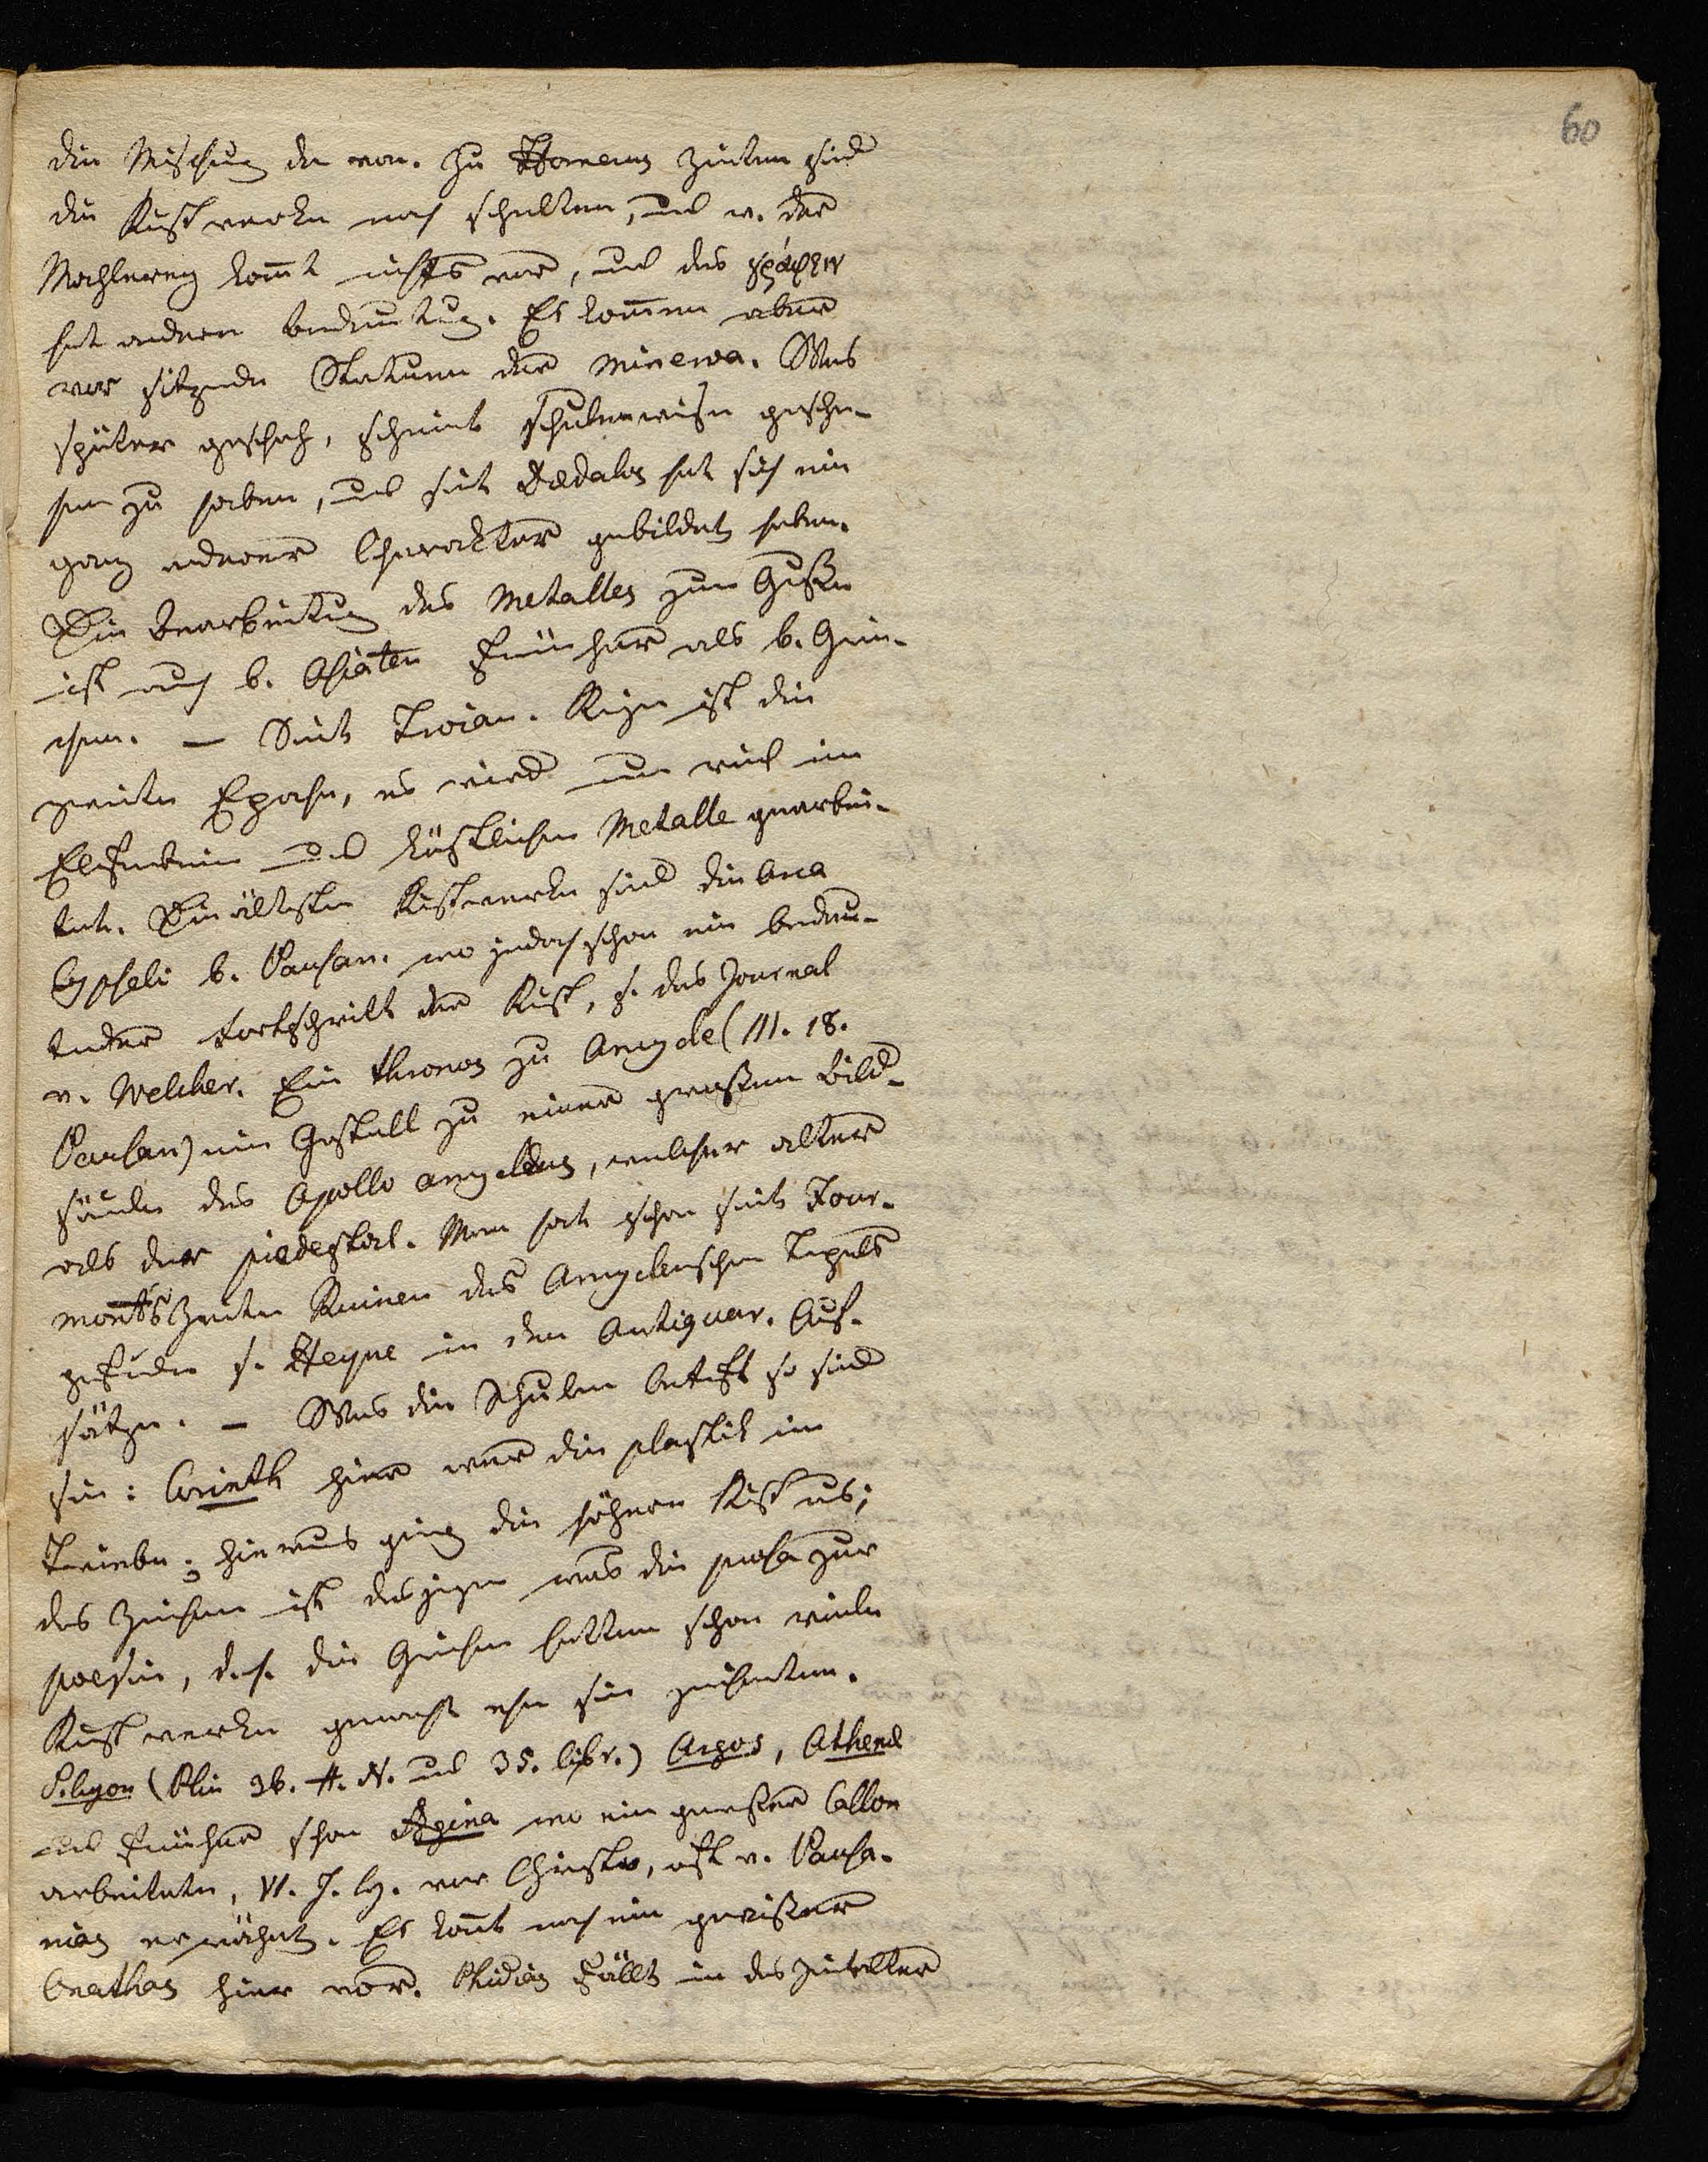 60
die Mischung da von. Zu Homers Zeiten sind
die Kunstwerke noch selten, und v. der
Mahlerey kommt nichts vor, und das γράφειν
hat andere Bedeutung. Es kommen aber
vor sitzende Statuen der Minerva. Was
später geschah, scheint Schulenweise gesche-
hen zu haben, und seit Dædalos hat sich ein
ganz anderer Charakter gebildet haben.
Die Bearbeitung des Metalles zum Guße
ist auch b. Asiaten früher als b. Grie-
chen. — Seit Troian. Krige ist die
zweite Epoche, es wird nun viel in
Elfenbein und köstlichen Metalle gearbei-
tet. Die ältesten Kunstwerke sind die Arca
Cypseli b. Pausan. wo jedoch schon ein bedeu-
tender Fortschritt der Kunst, s. das Journal
v. Welcker. Ein thronos zu Amyclæ (III. 18.
Pausan) ein Gestell zu einer großen Bild-
säule des Apollo amyclæus, welcher älter
als der piedestal. Man hat schon seit Four-
monts Zeiten Ruinen des Amyclæischen Tempels
gefunden s. Heyne in den Antiquar. Auf-
sätzen. — Was die Schulen betrifft so sind
sie: Corinth hier war die plastik im
Triebe; hieraus ging die höhere Kunst aus;
das Zeichnen ist dasjenige was die prosa zur
poesie, d. h. die Griechen hatten schon viele
Kunstwerke gemacht ehe sie zeichneten.
Sikyon (Plin 36. H. N. und 35. libr.) Argos, Athenæ
und früher schon Ægina wo ein gewisser Callon
arbeitete, VI. J. h. vor Christus, oft v. Pausa-
nias erwähnt. Es kommt noch ein gewisser
Onathas hier vor. Phidias fällt in das Zeitalter